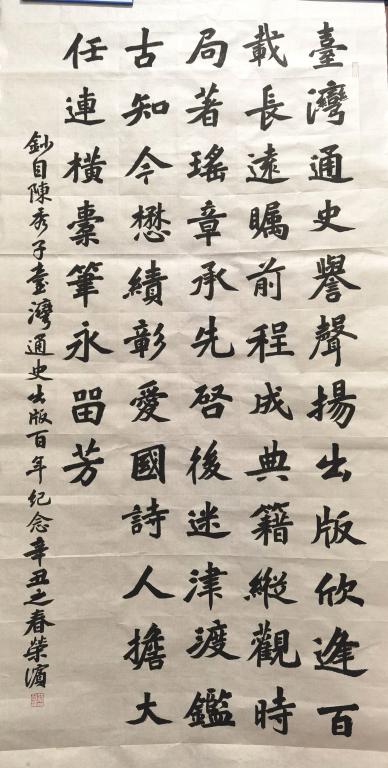 臺灣通史譽聲揚出版欣逢百
載長遠矚前程成典籍縱觀時
局著瑤章承先啓後迷津渡鑑
古知今懋績彰愛國詩人擔大
任連橫橐筆永留芳
鈔自陳秀子臺灣通史出版百年紀念辛丑之春榮濱